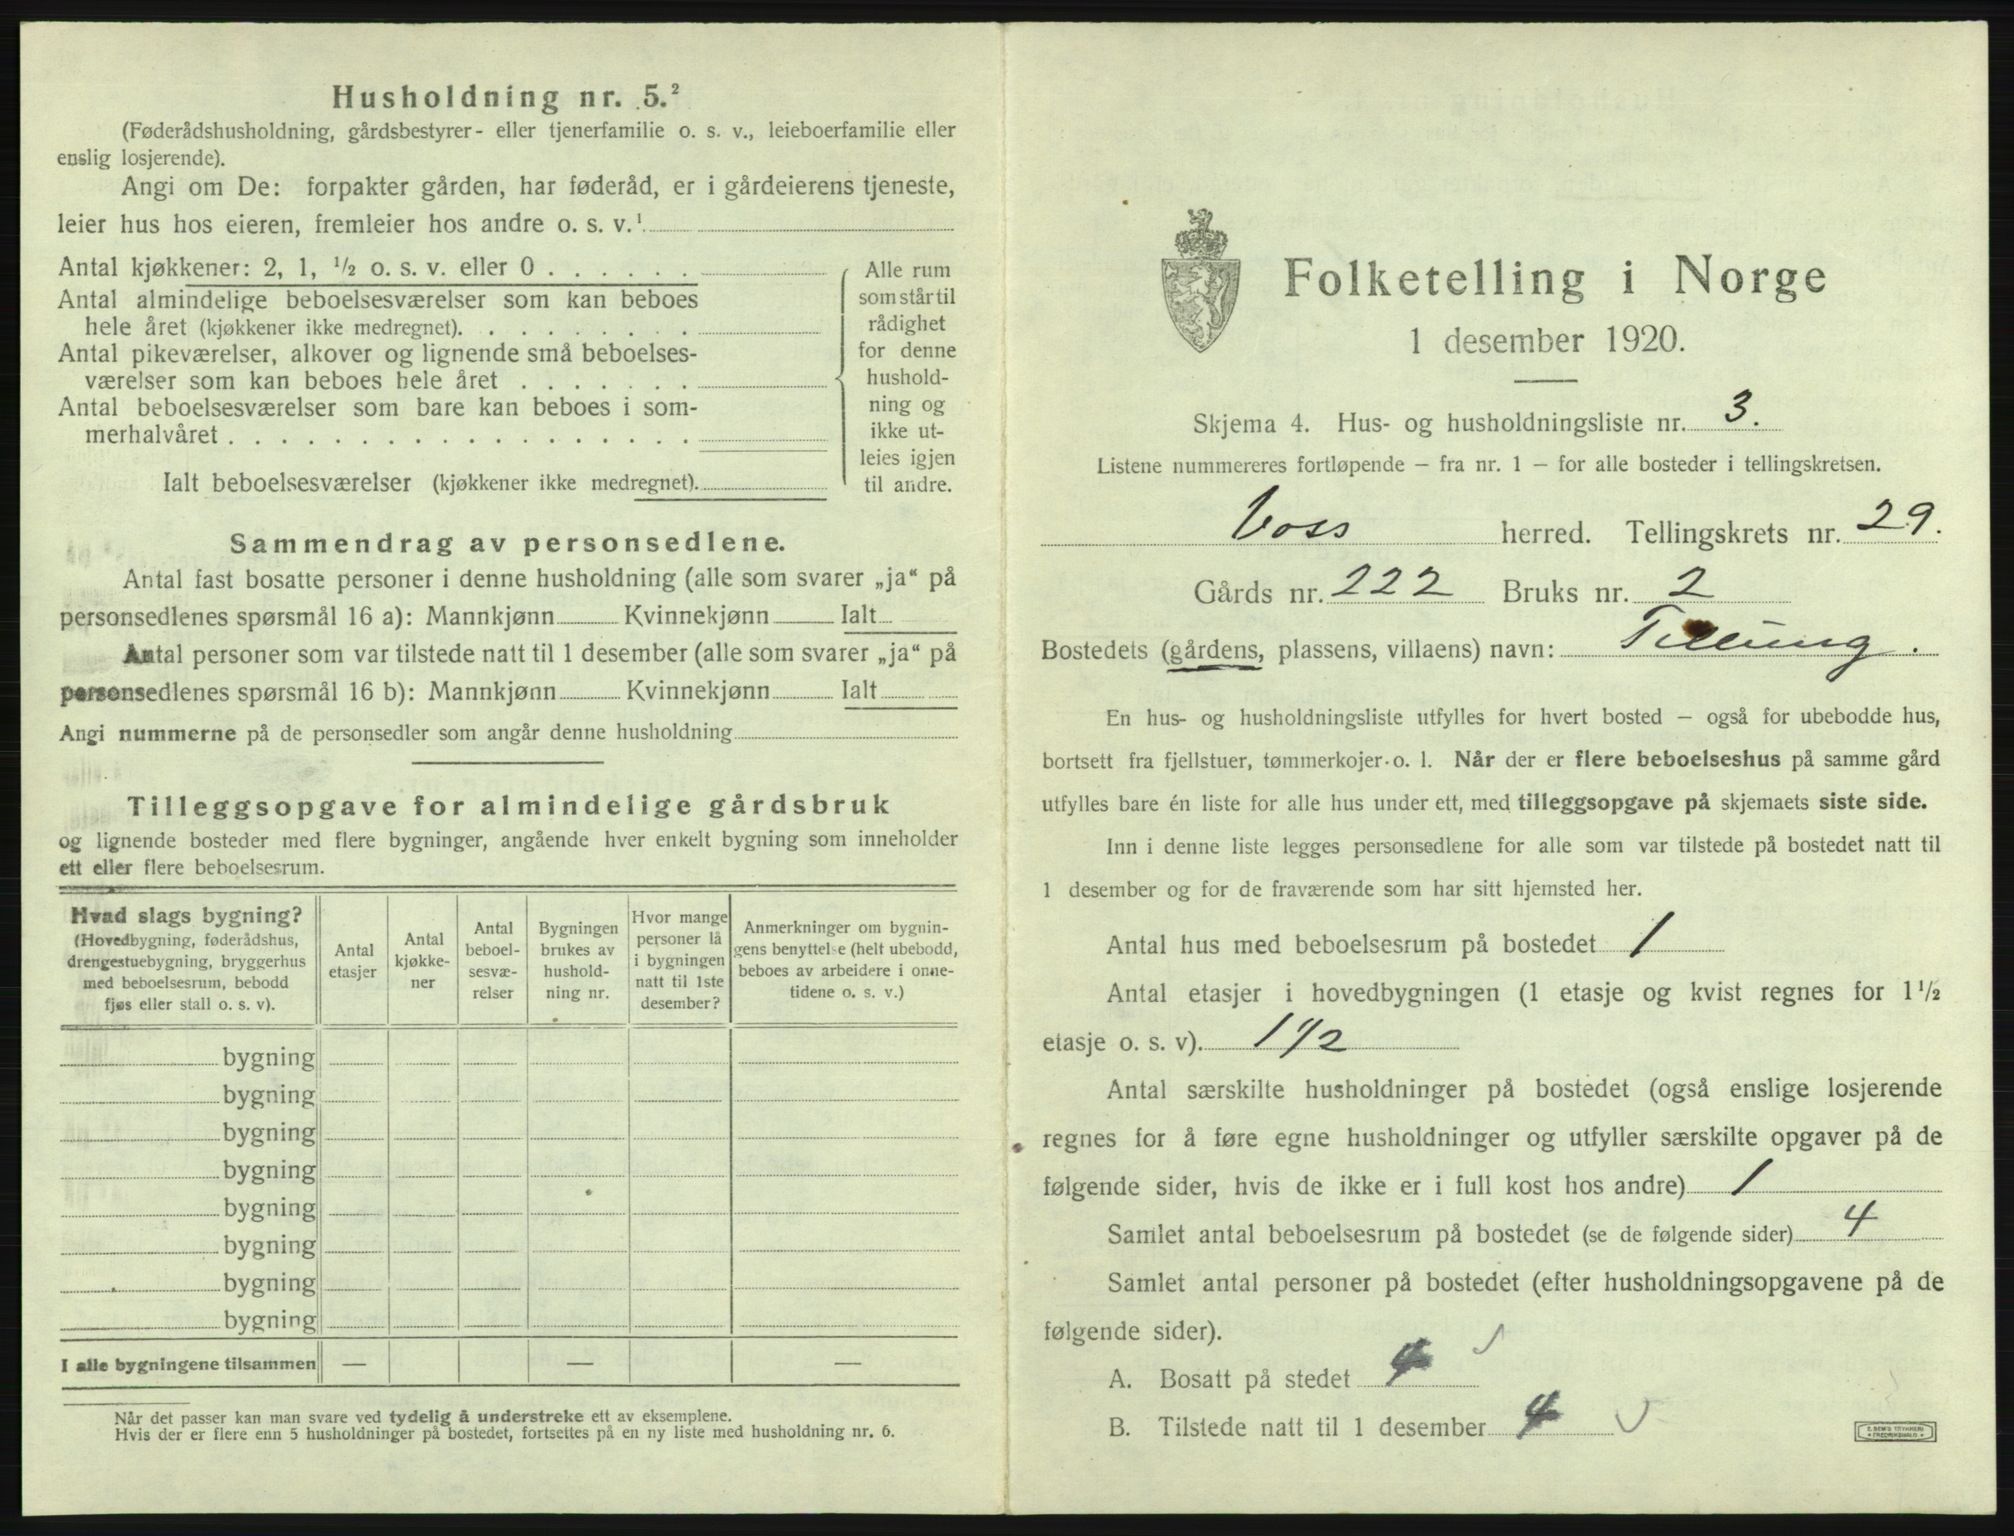 Husholdning nr. 5.²
(Føderådshusholdning, gårdsbestyrer- eller tjenerfamilie o. s. v., leieboerfamilie eller
enslig losjerende).
Angi om De: forpakter gården, har føderåd, er i gårdeierens tjeneste,
leier hus hos eieren, fremleier hos andre o. s. v.¹
Antal kjøkkener: 2, 1, ½ o. s. v. eller 0 . . . . . .
Antal almindelige beboelsesværelser som kan beboes
hele året (kjøkkener ikke medregnet). . . . . . . . .
Antal pikeværelser, alkover og lignende små beboelses-
værelser som kan beboes hele året . . . . . . .
Antal beboelsesværelser som bare kan beboes i som-
merhalvåret . . . . . . . . . . . . . . . . . .
Ialt beboelsesværelser (kjøkkener ikke medregnet).
Alle rum
som står til
rådighet
for denne
hushold-
ning og
ikke ut-
leies igjen
til andre.
Sammendrag av personsedlene.
Antal fast bosatte personer i denne husholdning (alle som svarer „ja“ på
personsedlenes spørsmål 16 a): Mannkjønn Kvinnekjønn Ialt
Antal personer som var tilstede natt til 1 desember (alle som svarer „ja“ på
personsedlenes spørsmål 16 b): Mannkjønn Kvinnekjønn Ialt
Angi nummerne på de personsedler som angår denne husholdning
Tilleggsopgave for almindelige gårdsbruk
og lignende bosteder med flere bygninger, angående hver enkelt bygning som inneholder
ett eller flere beboelsesrum.
Hvad slags bygning?
(Hovedbygning, føderådshus,
drengestuebygning, bryggerhus
med beboelsesrum, bebodd
fjøs eller stall o. s. v).
Antal
etasjer
Antal
kjøkke-
ner
Antal
beboel-
sesvæ-
relser
Bygningen
brukes av
hushold-
ning nr.
Hvor mange
personer lå
i bygningen
natt til 1ste
desember?
Anmerkninger om bygnin-
gens benyttelse (helt ubebodd,
beboes av arbeidere i onne-
tidene o. s. v.)
bygning
bygning
bygning
bygning
bygning
bygning
bygning
bygning
I alle bygningene tilsammen — — —
Når det passer kan man svare ved tydelig å understreke ett av eksemplene.
Hvis der er flere enn 5 husholdninger på bostedet, fortsettes på en ny liste med husholdning nr. 6.
Folketelling i Norge
1 desember 1920.
Skjema 4. Hus- og husholdningsliste nr. 3.
Listene nummereres fortløpende – fra nr. 1 – for alle bosteder i tellingskretsen.
Voss herred. Tellingskrets nr. 29.
Gårds nr. 222 Bruks nr. 2
Bostedets (gårdens, plassens, villaens) navn: Tillung.
En hus- og husholdningsliste utfylles for hvert bosted – også for ubebodde hus,
bortsett fra fjellstuer, tømmerkojer o. l. Når der er flere beboelseshus på samme gård
utfylles bare én liste for alle hus under ett, med tilleggsopgave på skjemaets siste side.
Inn i denne liste legges personsedlene for alle som var tilstede på bostedet natt til
1 desember og for de fraværende som har sitt hjemsted her.
Antal hus med beboelsesrum på bostedet 1
Antal etasjer i hovedbygningen (1 etasje og kvist regnes for 1½
etasje o. s. v). 1 1/2
Antal særskilte husholdninger på bostedet (også enslige losjerende
regnes for å føre egne husholdninger og utfyller særskilte opgaver på de
følgende sider, hvis de ikke er i full kost hos andre) 1
Samlet antal beboelsesrum på bostedet (se de følgende sider) 4
Samlet antal personer på bostedet (efter husholdningsopgavene på de
følgende sider).
A. Bosatt på stedet 4
B. Tilstede natt til 1 desember 4